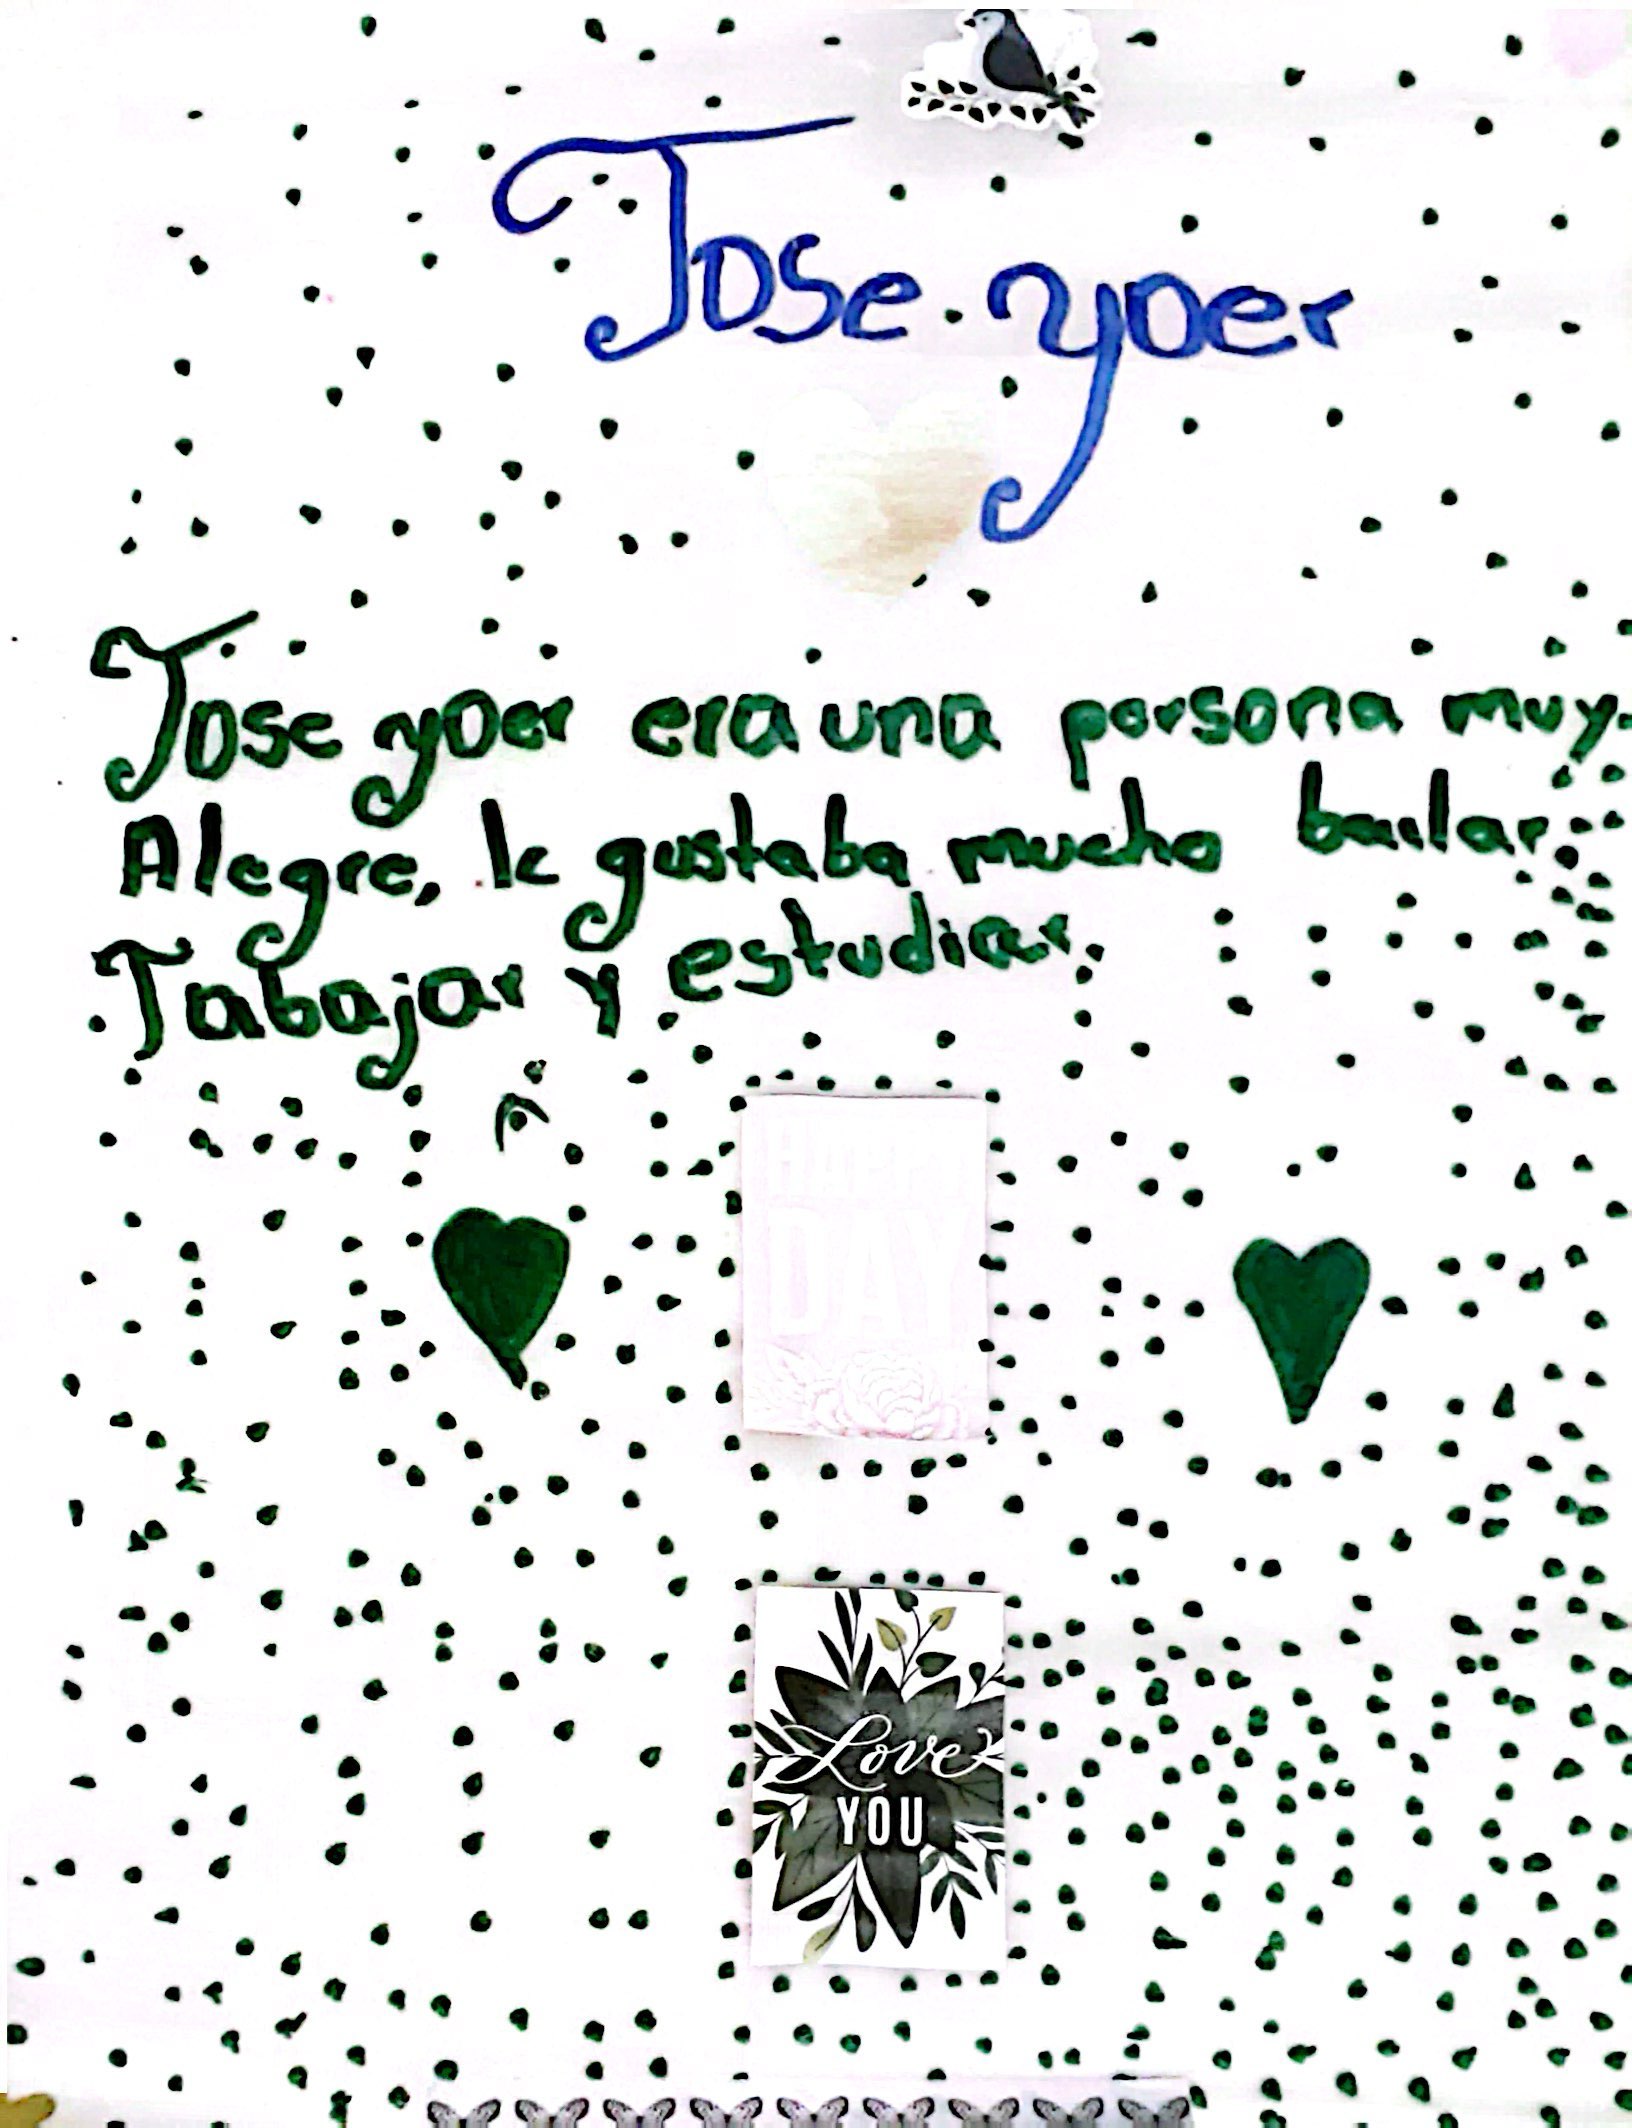 Jose yoer
Jose yoer era una persona muy.
Alegre, le gustaba mucho bailar.
Tabajar y estudiar.
DAY
Love
YOU